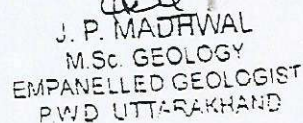 J. P. MADHWAL
M.Sc. GEOLOGY
EMPANELLED GEOLOGIST
P.W.D UTTARAKHAND